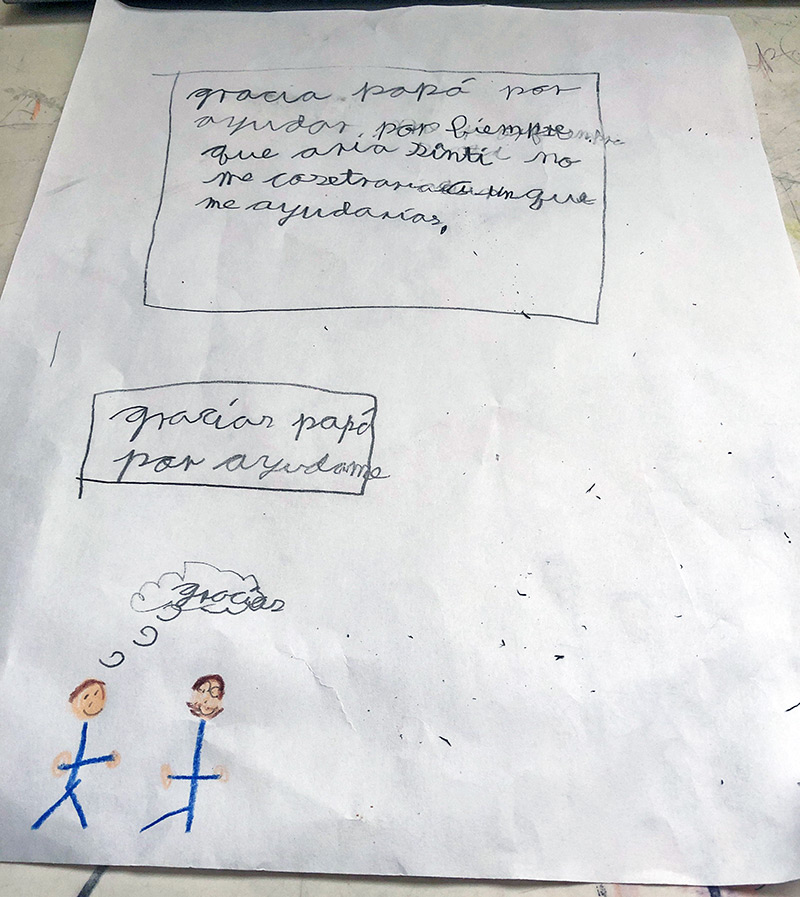 gracia papá por
ayudar, por siempre
que aria sinti no
me cosetraria un que
me ayudarías,
gracías papá
por ayudame
gracías